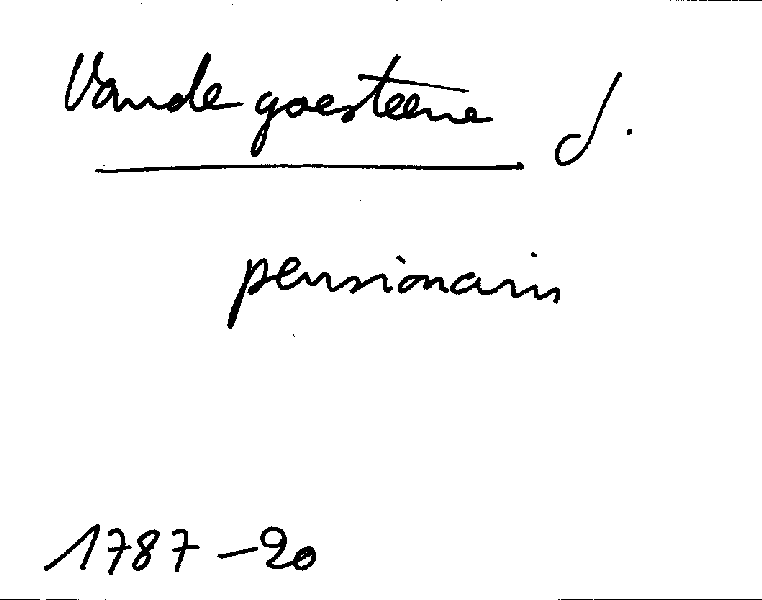 Vandegoesteene d.
pensionaris
1787-20